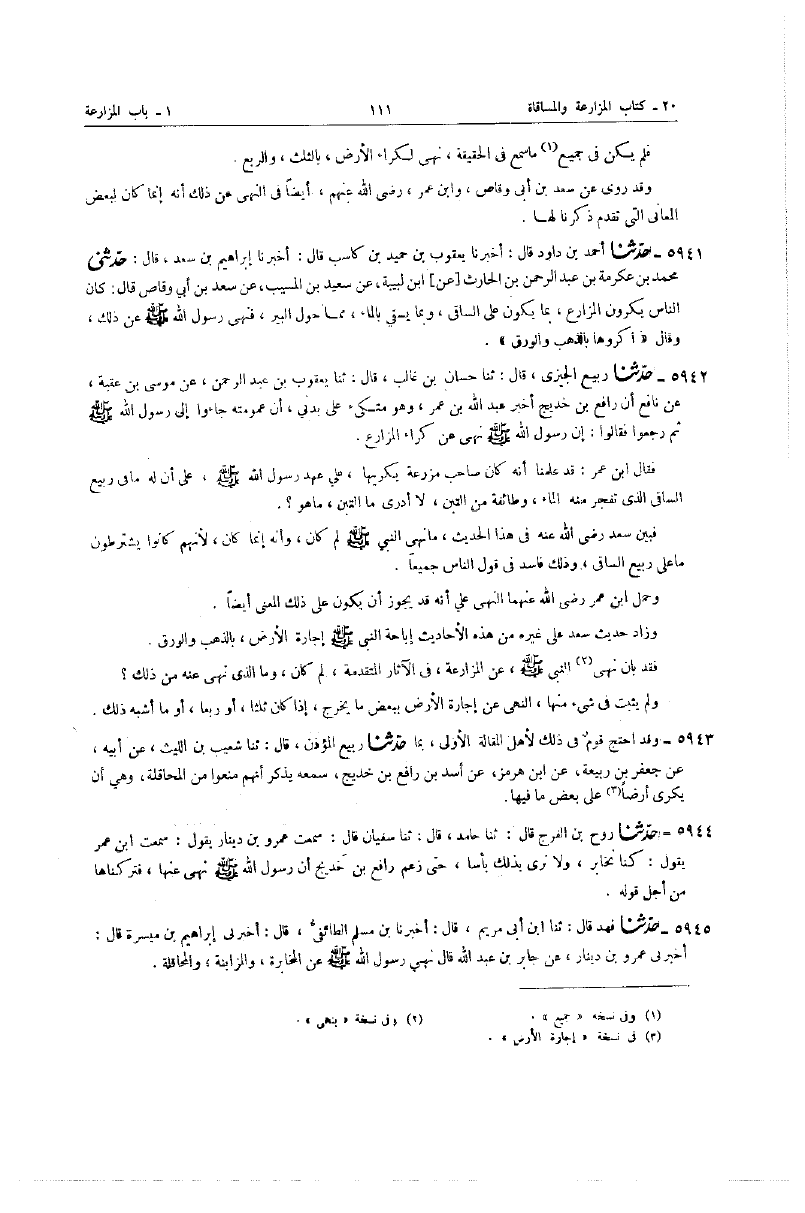 ٢٠ ـ كتاب المزارعة والمساقاة ١١١ ١ ـ باب المزارعة
فلم يكن فى جميع(١) ماسمع فى الحقيقة ، نهى لكراء الأرض ، بالثلث ، والربع .
وقد روى عن سعد بن أبى وقاص ، وابن عمر ، رضى الله عنهم ، أيضاً فى النهى عن ذلك أنه إنما كان لبعض
المعانى التى تقدم ذكرنا لها .
٥٩٤١ ـ حدّثنا أحمد بن داود قال : أخبرنا يعقوب بن حميد بن كاسب قال : أخبرنا إبراهيم بن سعد ، قال : حدّثنى
محمد بن عكرمة بن عبد الرحمن بن الحارث [عن] ابن لبيبة، عن سعيد بن المسيب، عن سعد بن أبي وقاص قال: كان
الناس يكرون المزارع ، بما يكون على الساقى ، وبما يسقي بالماء ، مما حول البير ، فنهى رسول الله ﷺ عن ذلك ،
وقال « أكروها بالذهب والورق » .
٥٩٤٢ ـ حدّثنا ربيع الجيزى ، قال : ثنا حسان بن غالب ، قال : ثنا يعقوب بن عبد الرحمن ، عن موسى بن عقبة ،
عن نافع أن رافع بن خديج أخبر عبد الله بن عمر ، وهو متكىء على يدىّ ، أن عمومته جاءوا إلى رسول الله ﷺ
ثم رجعوا فقالوا : إن رسول الله ﷺ نهى عن كراء المزارع .
فقال ابن عمر : قد علمنا أنه كان صاحب مزرعة يكريها ، على عهد رسول الله ﷺ ، على أن له مافى ربيع
الساقى الذى تفجر منه الماء ، وطائفة من التبن ، لا أدرى ما التبن ، ماهو ؟ .
فبين سعد رضى الله عنه فى هذا الحديث ، مانهى النبي ﷺ لم كان ، وأنه إنما كان ، لأنهم كانوا يشترطون
ماعلى ربيع الساقى ، وذلك فاسد فى قول الناس جميعاً .
وحمل ابن عمر رضى الله عنهما النهى علي أنه قد يجوز أن يكون على ذلك المعنى أيضاً .
وزاد حديث سعد على غيره من هذه الأحاديث إباحة النبي ﷺ إجارة الأرض ، بالذهب والورق .
فقد بان نهى(٢) النبي ﷺ ، عن المزارعة ، فى الآثار المتقدمة ، لم كان ، وما الذى نهى عنه من ذلك ؟
ولم يثبت فى شىء منها ، النهى عن إجارة الأرض ببعض ما يخرج ، إذا كان ثلثا ، أو ربعا ، أو ما أشبه ذلك .
٥٩٤٣ ـ وقد احتج قوم فى ذلك لأهل المقالة الأولى ، بما حدّثنا ربيع المؤذن ، قال : ثنا شعيب بن الليث ، عن أبيه ،
عن جعفر بن ربيعة، عن ابن هرمز، عن أسد بن رافع بن خديج، سمعه يذكر أنهم منعوا من المحاقلة، وهي أن
يكرى أرضاً(٣) على بعض ما فيها.
٥٩٤٤ ـ حدّثنا روح بن الفرج قال : ثنا حامد ، قال : ثنا سفيان قال : سمعت عمرو بن دينار يقول : سمعت ابن عمر
يقول : كنا نخابر ، ولا نرى بذلك بأسا ، حتى زعم رافع بن خديج أن رسول الله ﷺ نهى عنها ، فتركناها
من أجل قوله .
٥٩٤٥ ـ حدّثنا فهد قال : ثنا ابن أبى مريم ، قال : أخبرنا بن مسلم الطائفى ، قال : أخبرنى إبراهيم بن ميسرة قال :
أخبرنى عمرو بن دينار ، عن جابر بن عبد الله قال نهى رسول الله ﷺ عن المخابرة ، والمزابنة ، والمحاقلة .
(١) وفى نسخه « جميع » . (٢) وفى نسخة « ينهى » .
(٣) فى نسخة « إجارة الأرض » .